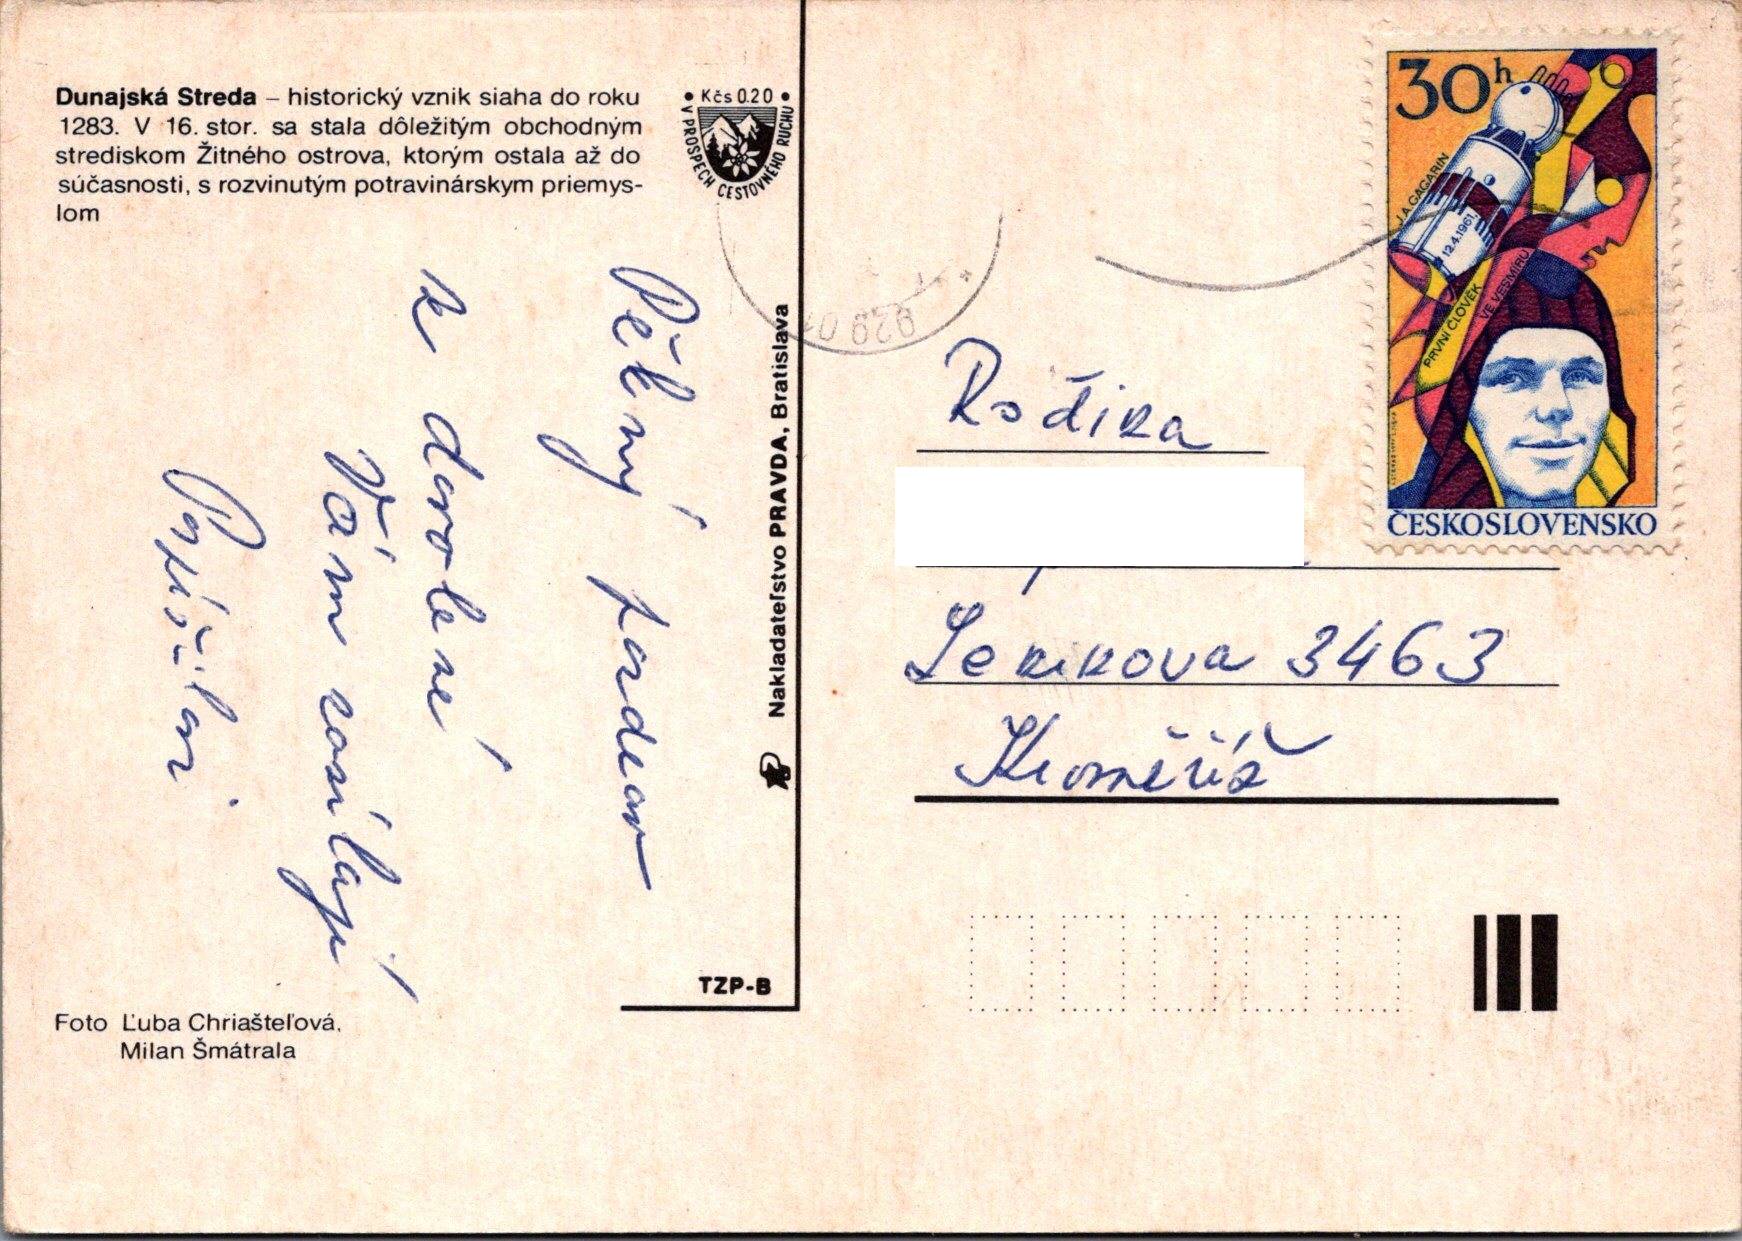 Dunajská Streda – historický vznik siaha do roku
1283. V 16. stor. sa stala dôležitým obchodným
strediskom Žitného ostrova, ktorým ostala až do
súčasnosti, s rozvinutým potravinárskym priemys-
lom
• Kčs 0.20 •
V PROSPECH CESTOVNÉHO RUCHU
Pěkný pozdrav
z dovolené
Vám zasílají
Nakladateľstvo PRAVDA, Bratislava
TZP-B
Foto Ľuba Chriašteľová,
Milan Šmátrala
929 01
30h
J.A. GAGARIN
12.4.1961
PRVNÍ ČLOVĚK
VE VESMÍRU
ČESKOSLOVENSKO
Rodina
3463
Kroměříž